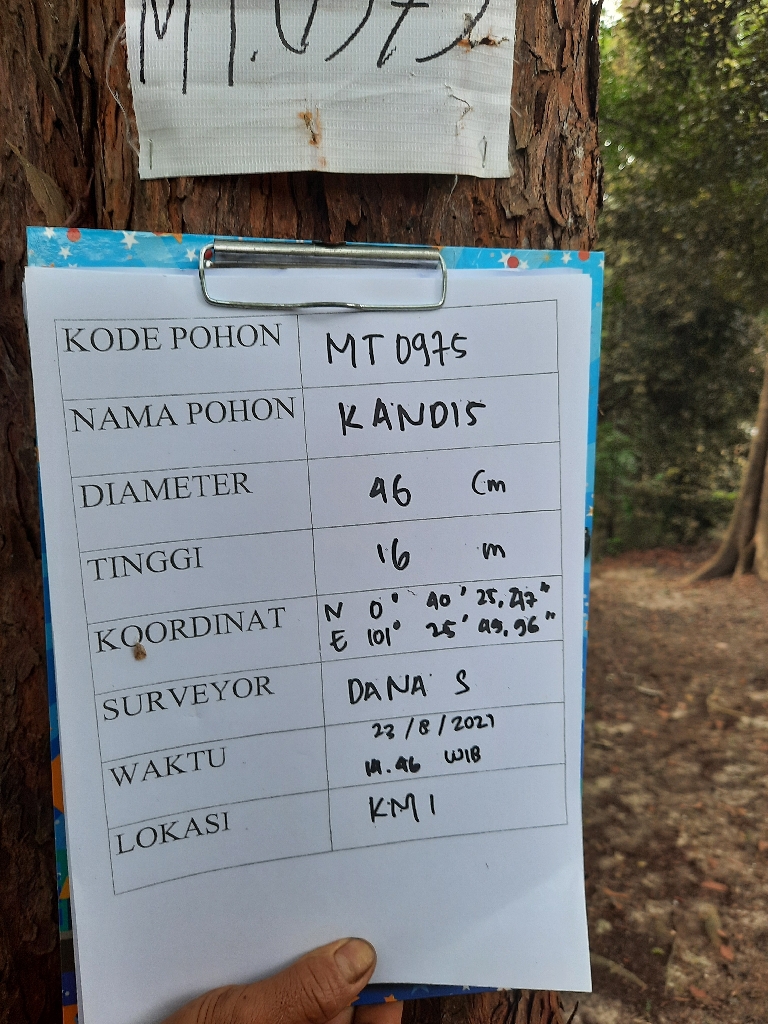 MT.0975
KODE POHON MT 0975
NAMA POHON KANDIS
DIAMETER 46 Cm
TINGGI 16 m
KOORDINAT N 0° 40' 25,247"
E 101° 25' 49,96"
SURVEYOR DANA S
WAKTU 23/8/2021
14.46 WIB
LOKASI KM 1